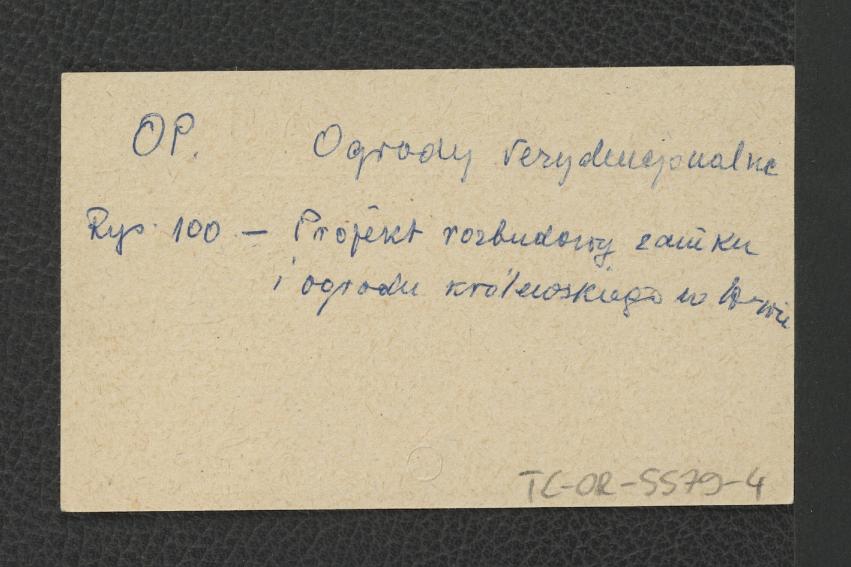 OP. Ogrody rezydencjonalne
Rys. 100 — Projekt rozbudowy zamku
i ogrodu królewskiego w W-wie
TC-OR-5579-4